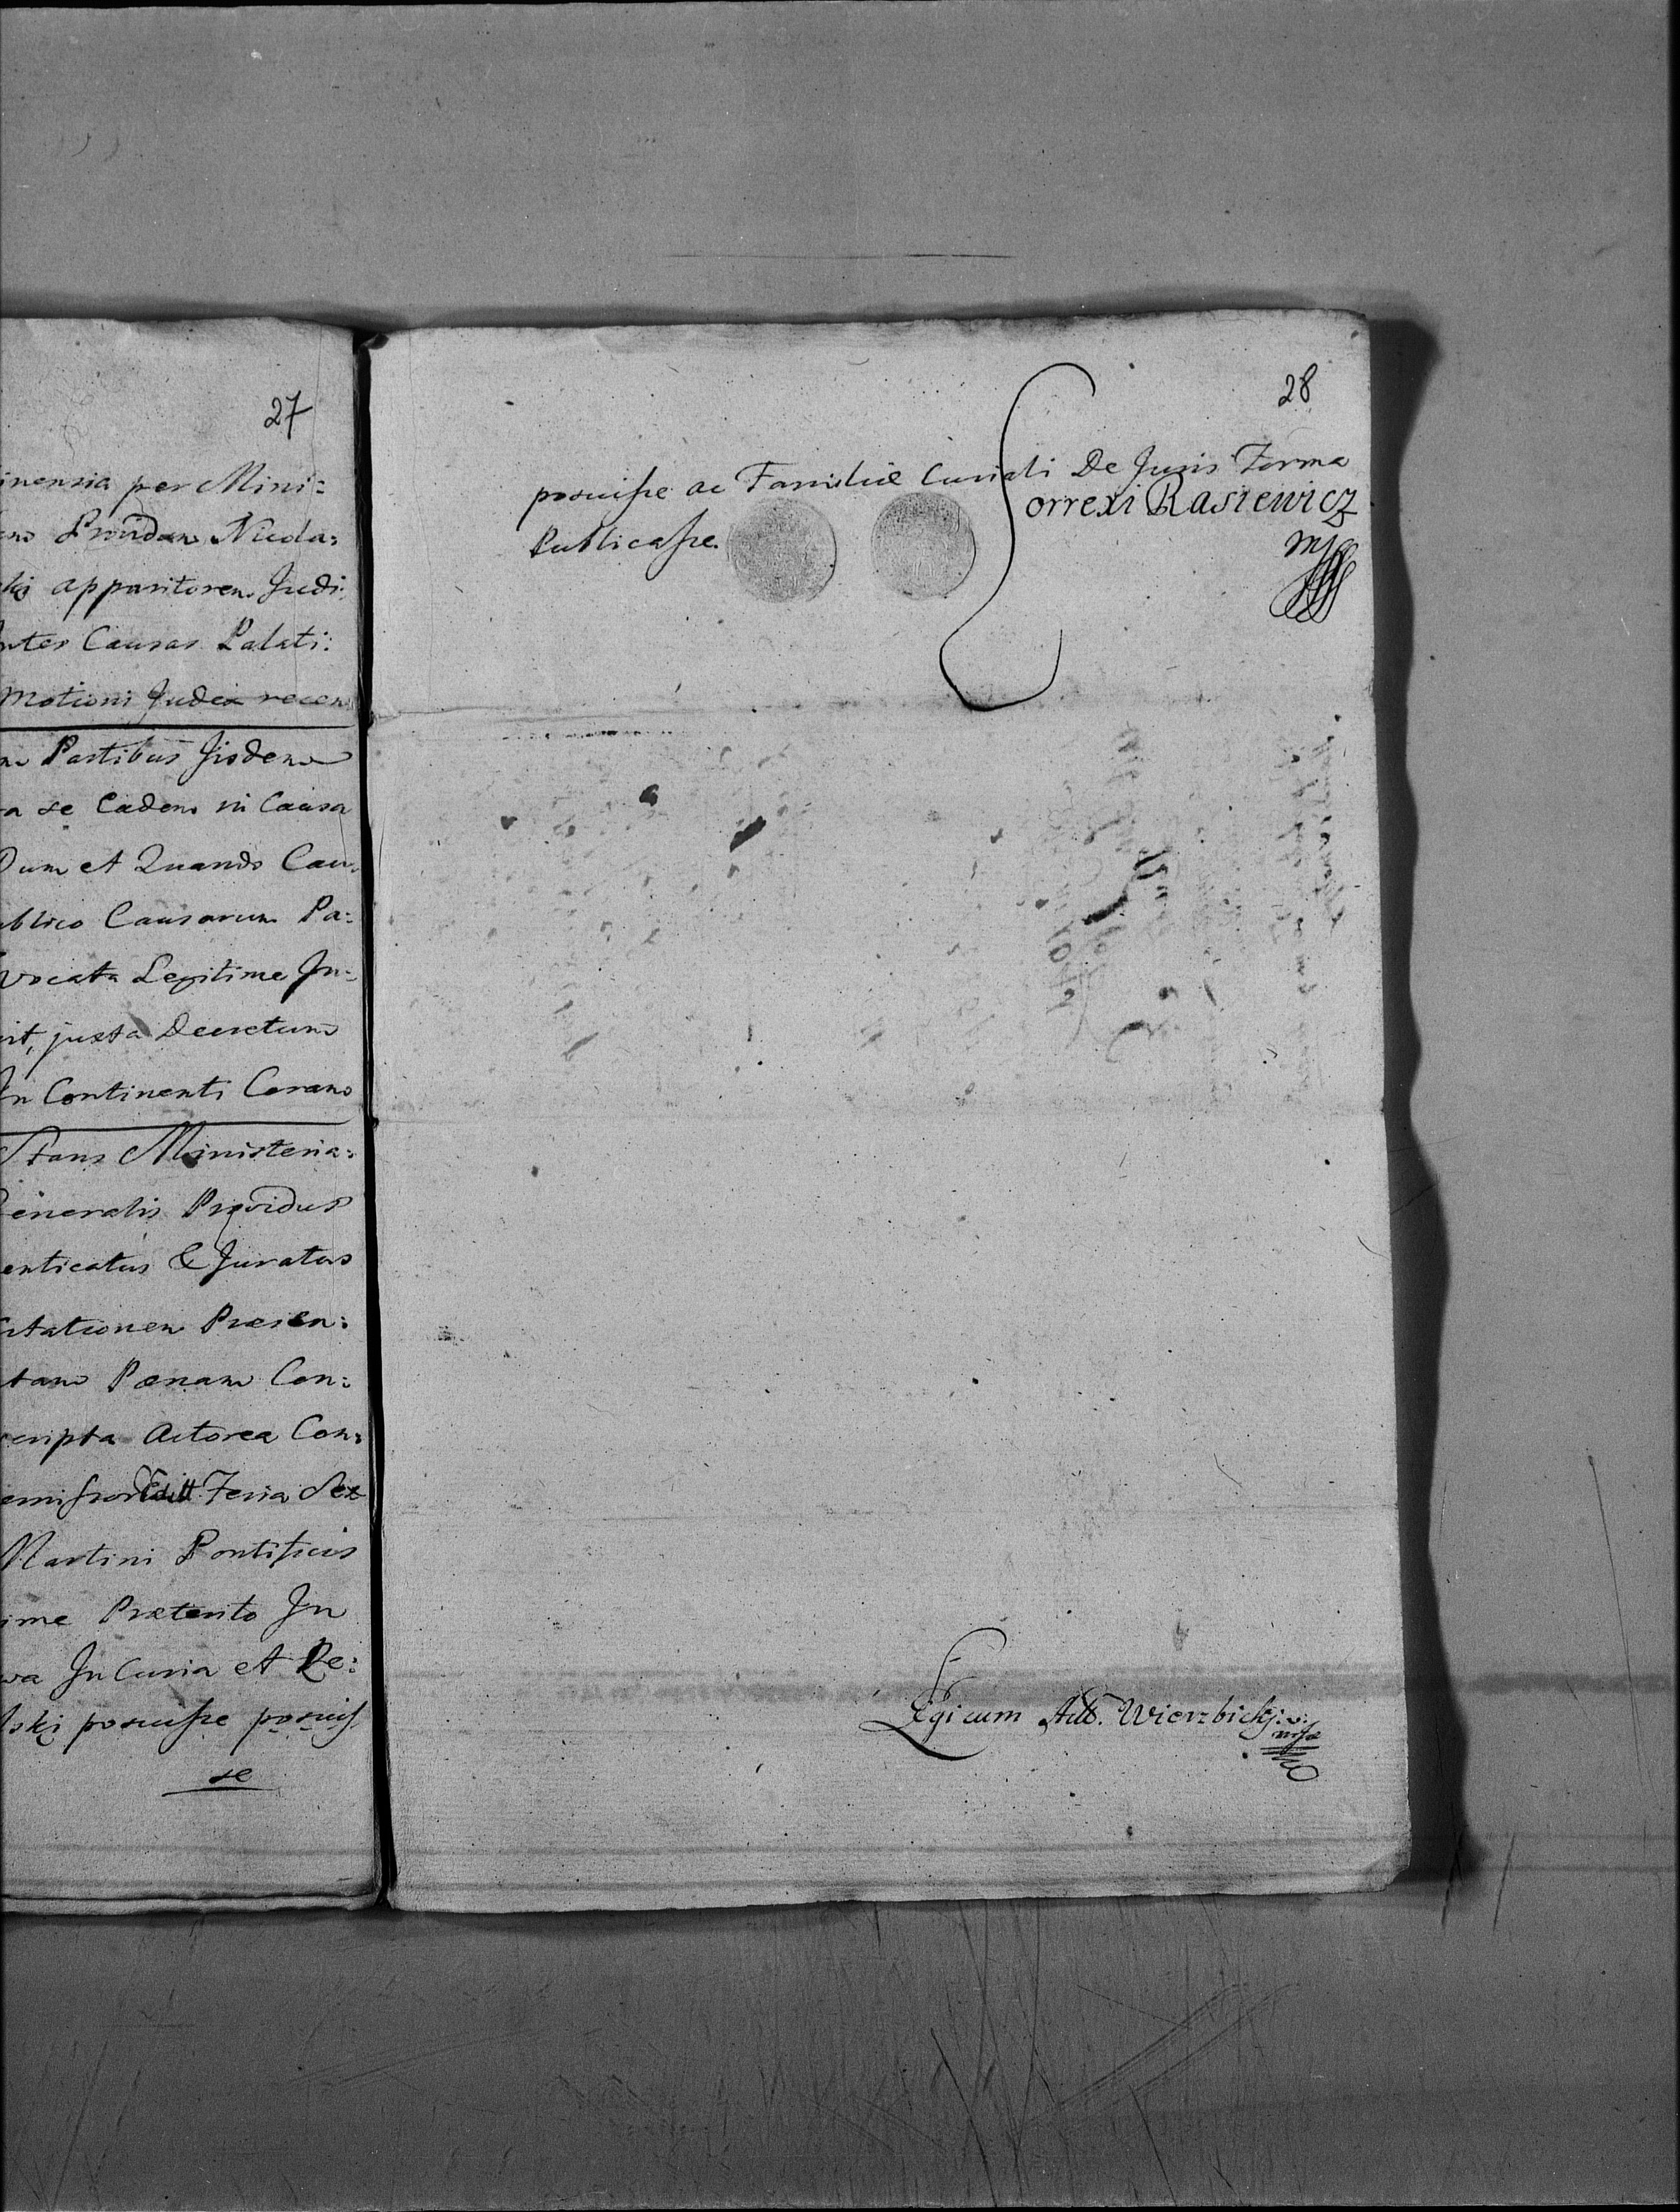 27
inensia per Mini:
Providum Nicola:
ski apparitorem Judi:
nter Causas Palati:
motioni Judex recen
Partibus Jisdem
ra se Eadem in Causa
Dum et Quando Cau:
ublico Causarum Pa:
vocata Legitime In:
rit, juxta Decretum
In Continenti Coram
Stans Ministeria:
Generalis Providus
enticatus & Juratus
itationem Præsen:
tam Pænam Con:
cripta Actorea Con:
emissor Edidit Feria Sex
Martini Pontificis
ime Præterito In
wa In Curia et Re:
lski posuisse posuis
se
28
posuisse ac Familiæ Curiali De Juris Forma
Publicasse.
Correxi Rasiewicz
mp
Legi cum Act. Wierzbicki v:
mp